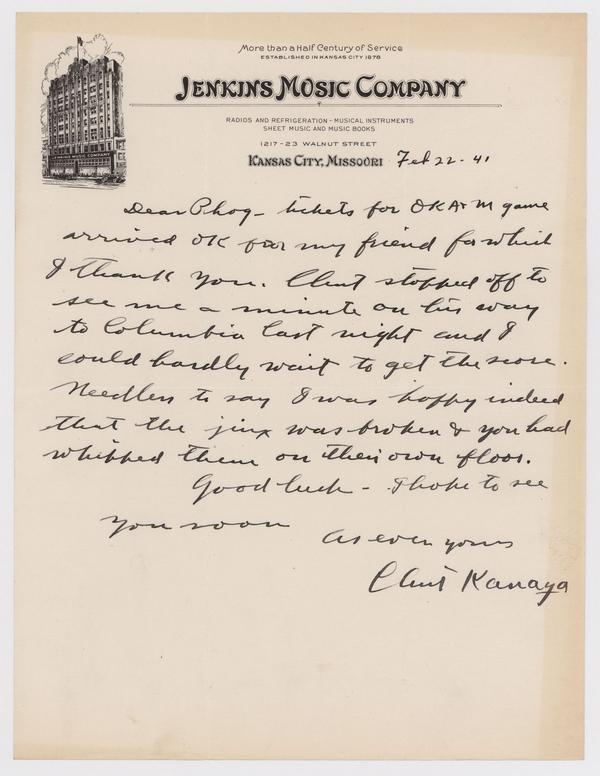 More than a Half Century of Service
ESTABLISHED IN KANSAS CITY 1878
JENKINS MUSIC COMPANY
JENKINS MUSIC COMPANY
RADIOS AND REFRIGERATION - MUSICAL INSTRUMENTS
SHEET MUSIC AND MUSIC BOOKS
1217-23 WALNUT STREET
KANSAS CITY, MISSOURI Feb 22 - 41
Dear Phog - tickets for OK A+M game
arrived OK for my friend for which
I thank you. Clint stopped off to
see me a minute on his way
to Columbia last night and I
could hardly wait to get the score.
Needless to say I was happy indeed
that the jinx was broken & you had
whipped them on their own floor.
Good luck - I hope to see
you soon
As ever yours
Clint Kanaga